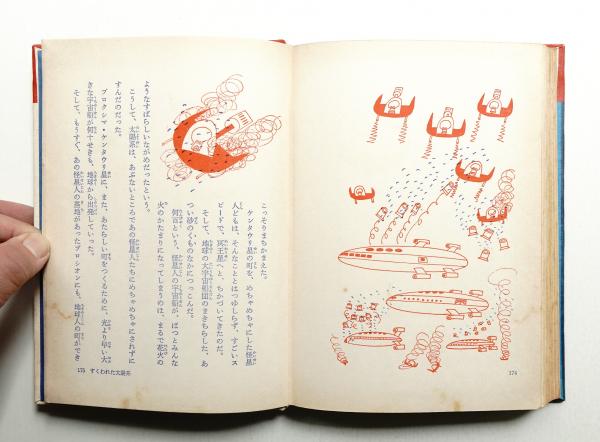 こっそりまちかまえた。
ケンタウリ星の町を、めちゃめちゃにした怪星
人どもは、そんなこととはつゆしらず、すごいス
ピードで、冥王星へと、ちかづいてきたのだ。
そして、地球の大宇宙船団のまきちらした、あ
つい砂のくものなかにつっこんだ。
何百という、怪星人の宇宙船が、ぱっとみんな
火のかたまりになってしまうのは、まるで花火の
ようなすばらしいながめだったという。
こうして、太陽系は、あぶないところであの怪星人たちにめちゃめちゃにされずに
すんだのだった。
プロクシマ・ケンタウリ星に、また、あたらしい町をつくるために、光より早い大
きな宇宙船が何十せきも、地球から出発していった。
そして、もうすぐ、あの怪星人の基地があったプロシオンにも、地球人の町ができ
175 すくわれた太陽系
174